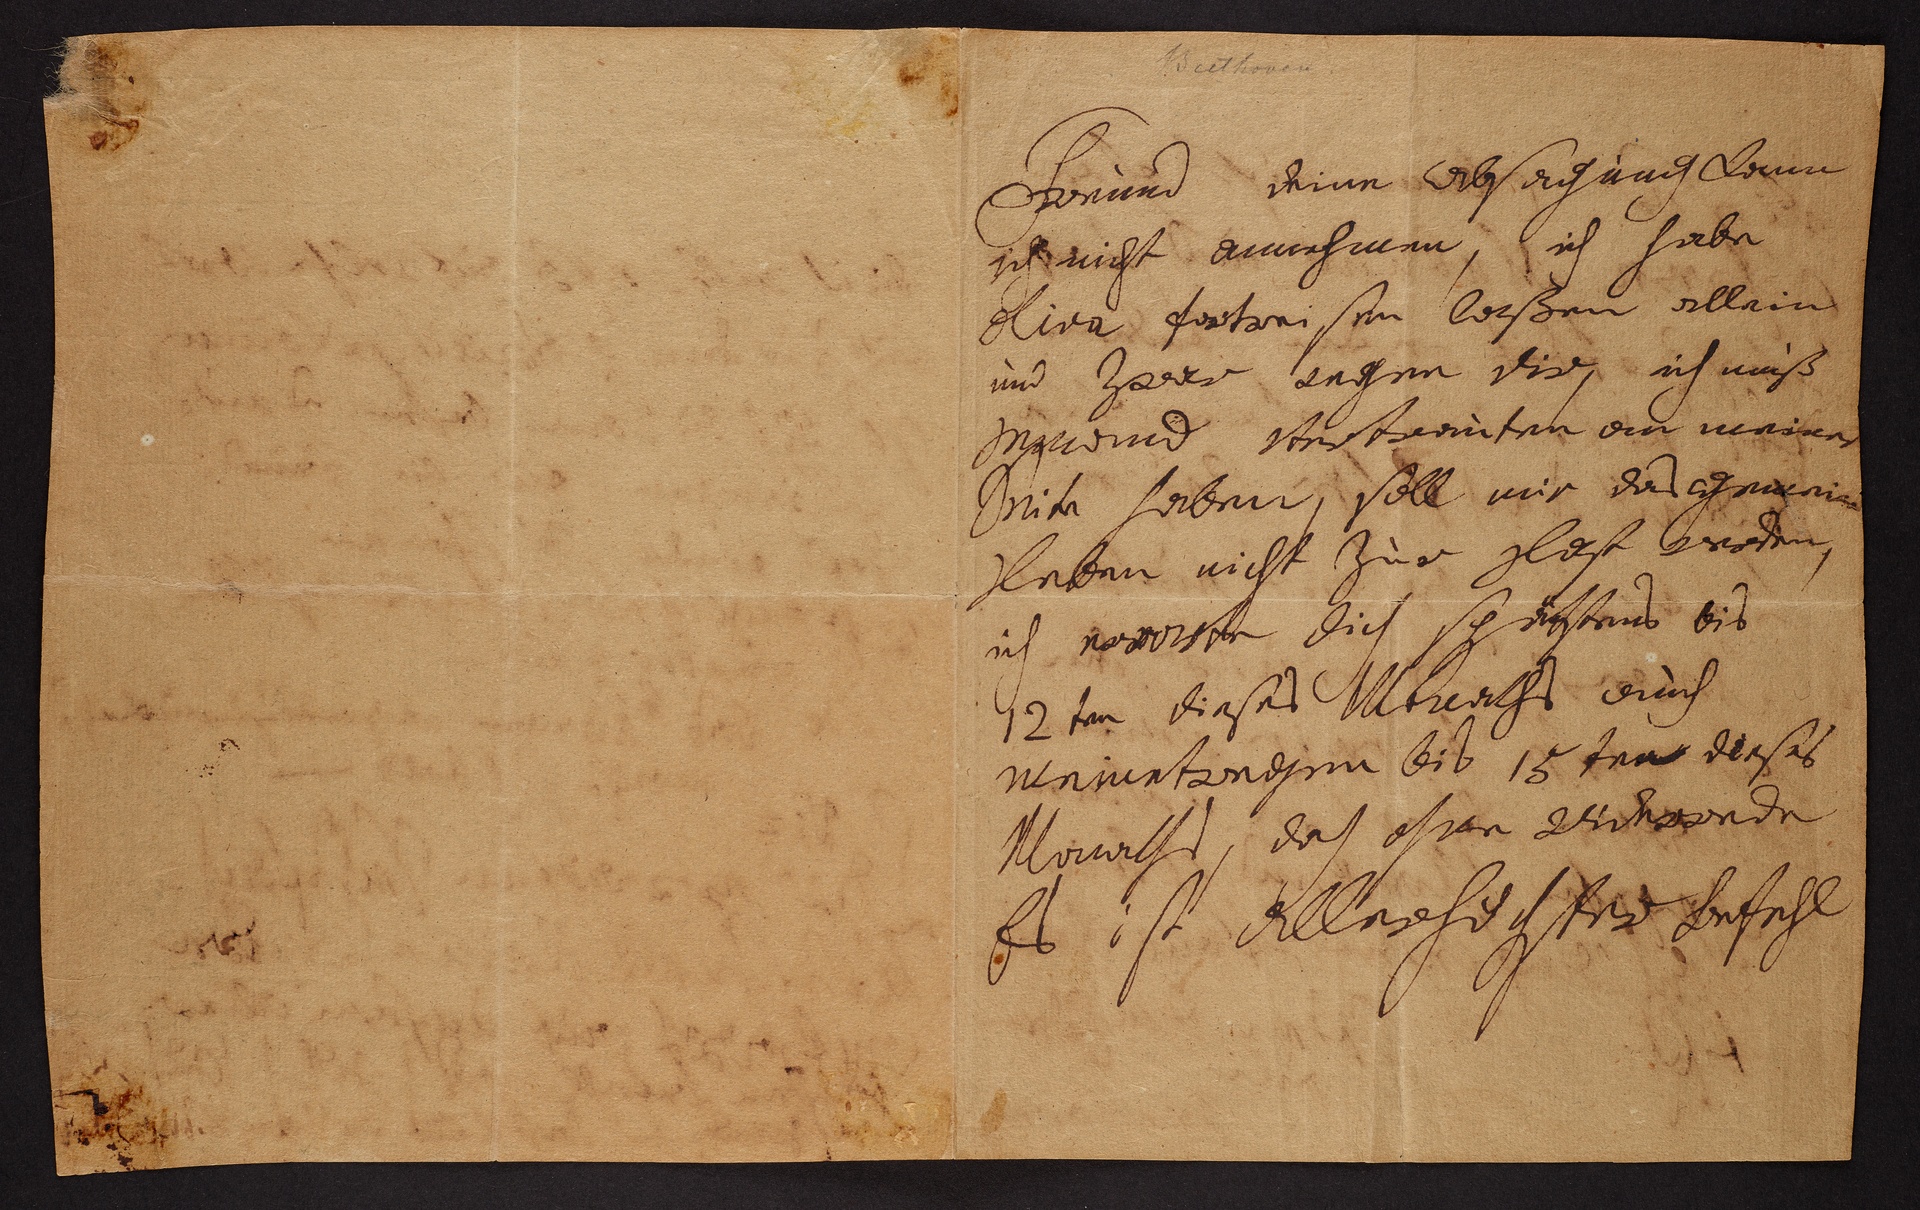 Beethoven
Freund deine absagung kann
ich nicht annehmen, ich habe
Oliva fortreisen laßen allein
und zwar wegen dir, ich muß
jemand vertrauten an meiner
Seite haben, soll mir das gemeine
Leben nicht zur Last werden,
ich erwarte dich spätstens bis
12ten dieses Monaths auch
meinetwegen bis 15ten dieses
Monaths, doch ohne Widerrede
Es ist allerhöchster befehl